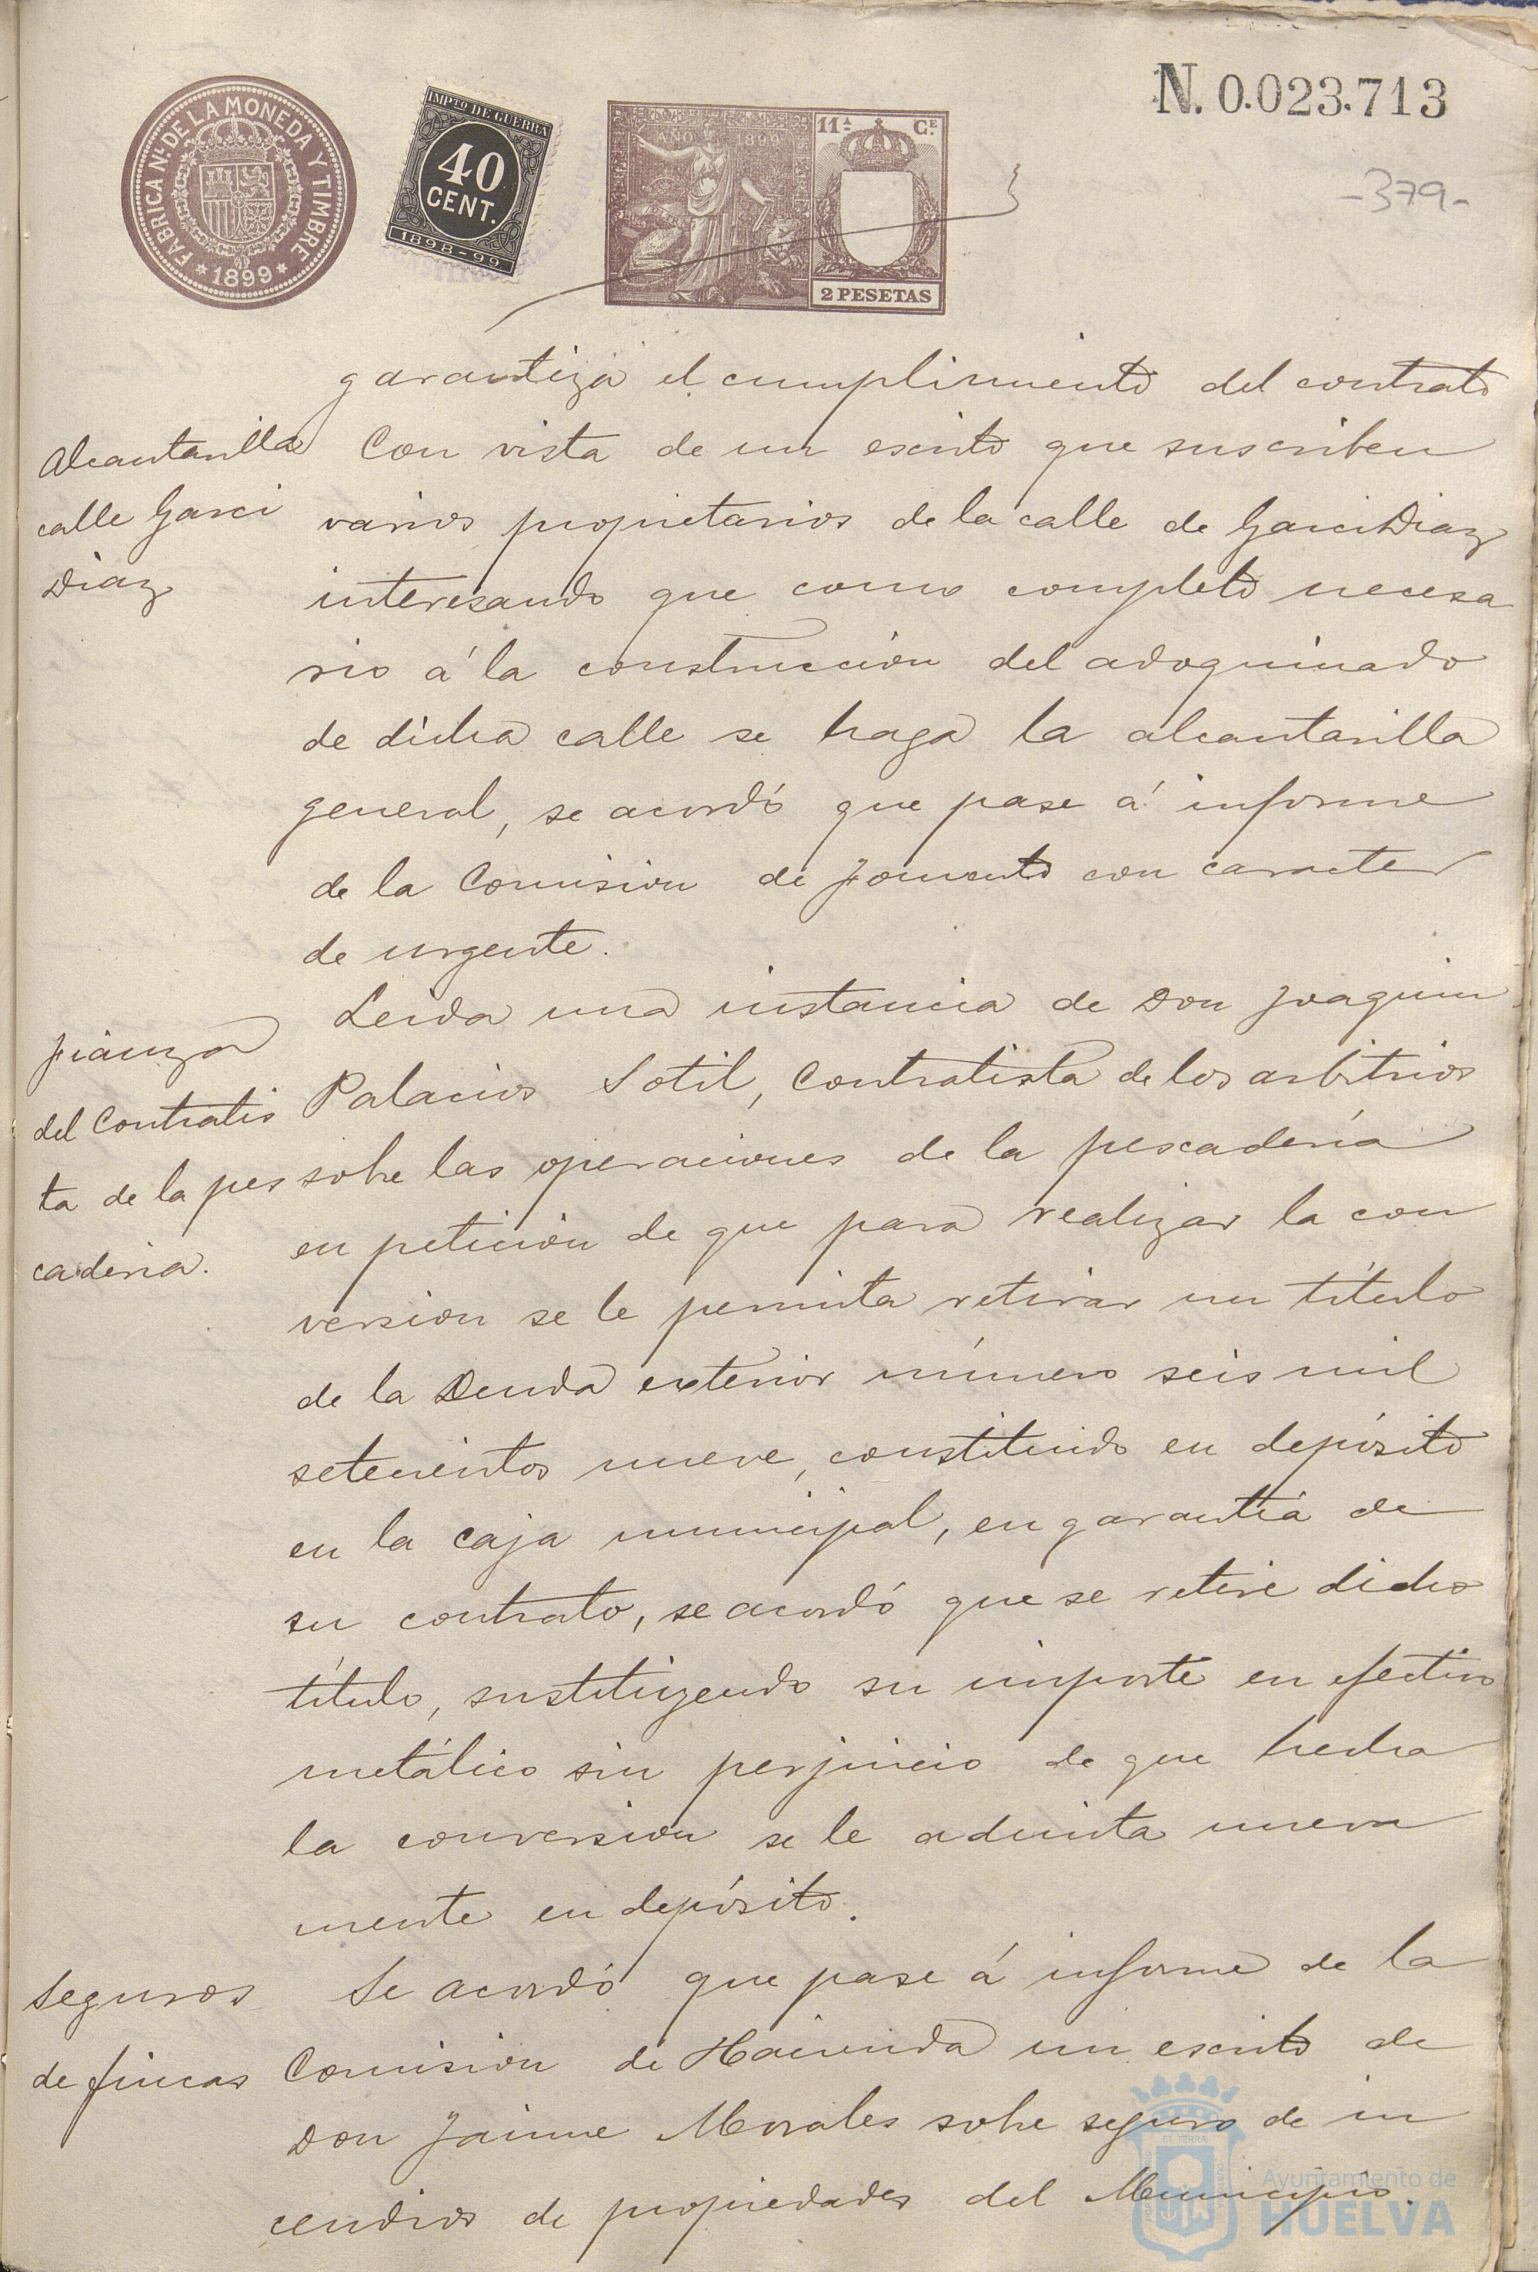 N. 0.023.713
-379-
FÁBRICA NL. DE LA MONEDA Y TIMBRE
* 1899 *
IMPTO DE GUERRA
40
CENT.
1898-99
AÑO 1899
11ª CE.
2 PESETAS
garantiza el cumplimiento del contrato
Alcantarilla
calle Garci
Diaz
Con vista de un escrito que suscriben
varios propietarios de la calle de Garci Diaz
interesando que como completo necesa
rio á la construcción del adoquinado
de dicha calle se haga la alcantarilla
general, se acordó que pase á informe
de la Comision de Fomento con caracter
de urgente.
Fianza
del Contratis
ta de la pes
caderia.
Leida una instancia de Don Joaquin
Palacios Sotil, Contratista de los arbitrios
sobre las operaciones de la pescadería
en petición de que para realizar la con
version se le permita retirar un título
de la Deuda exterior número seis mil
setecientos nueve, constituido en depósito
en la caja municipal, en garantía de
su contrato, se acordó que se retire dicho
título, sustituyendo su importe en efectivo
metálico sin perjuicio de que hecha
la conversion se le admita nueva
mente en depósito.
Seguros
de fincas
Se acordó que pase á informe de la
Comision de Hacienda un escrito de
Don Jaime Morales sobre seguro de in
cendios de propiedades del Municipio.
Ayuntamiento de
HUELVA